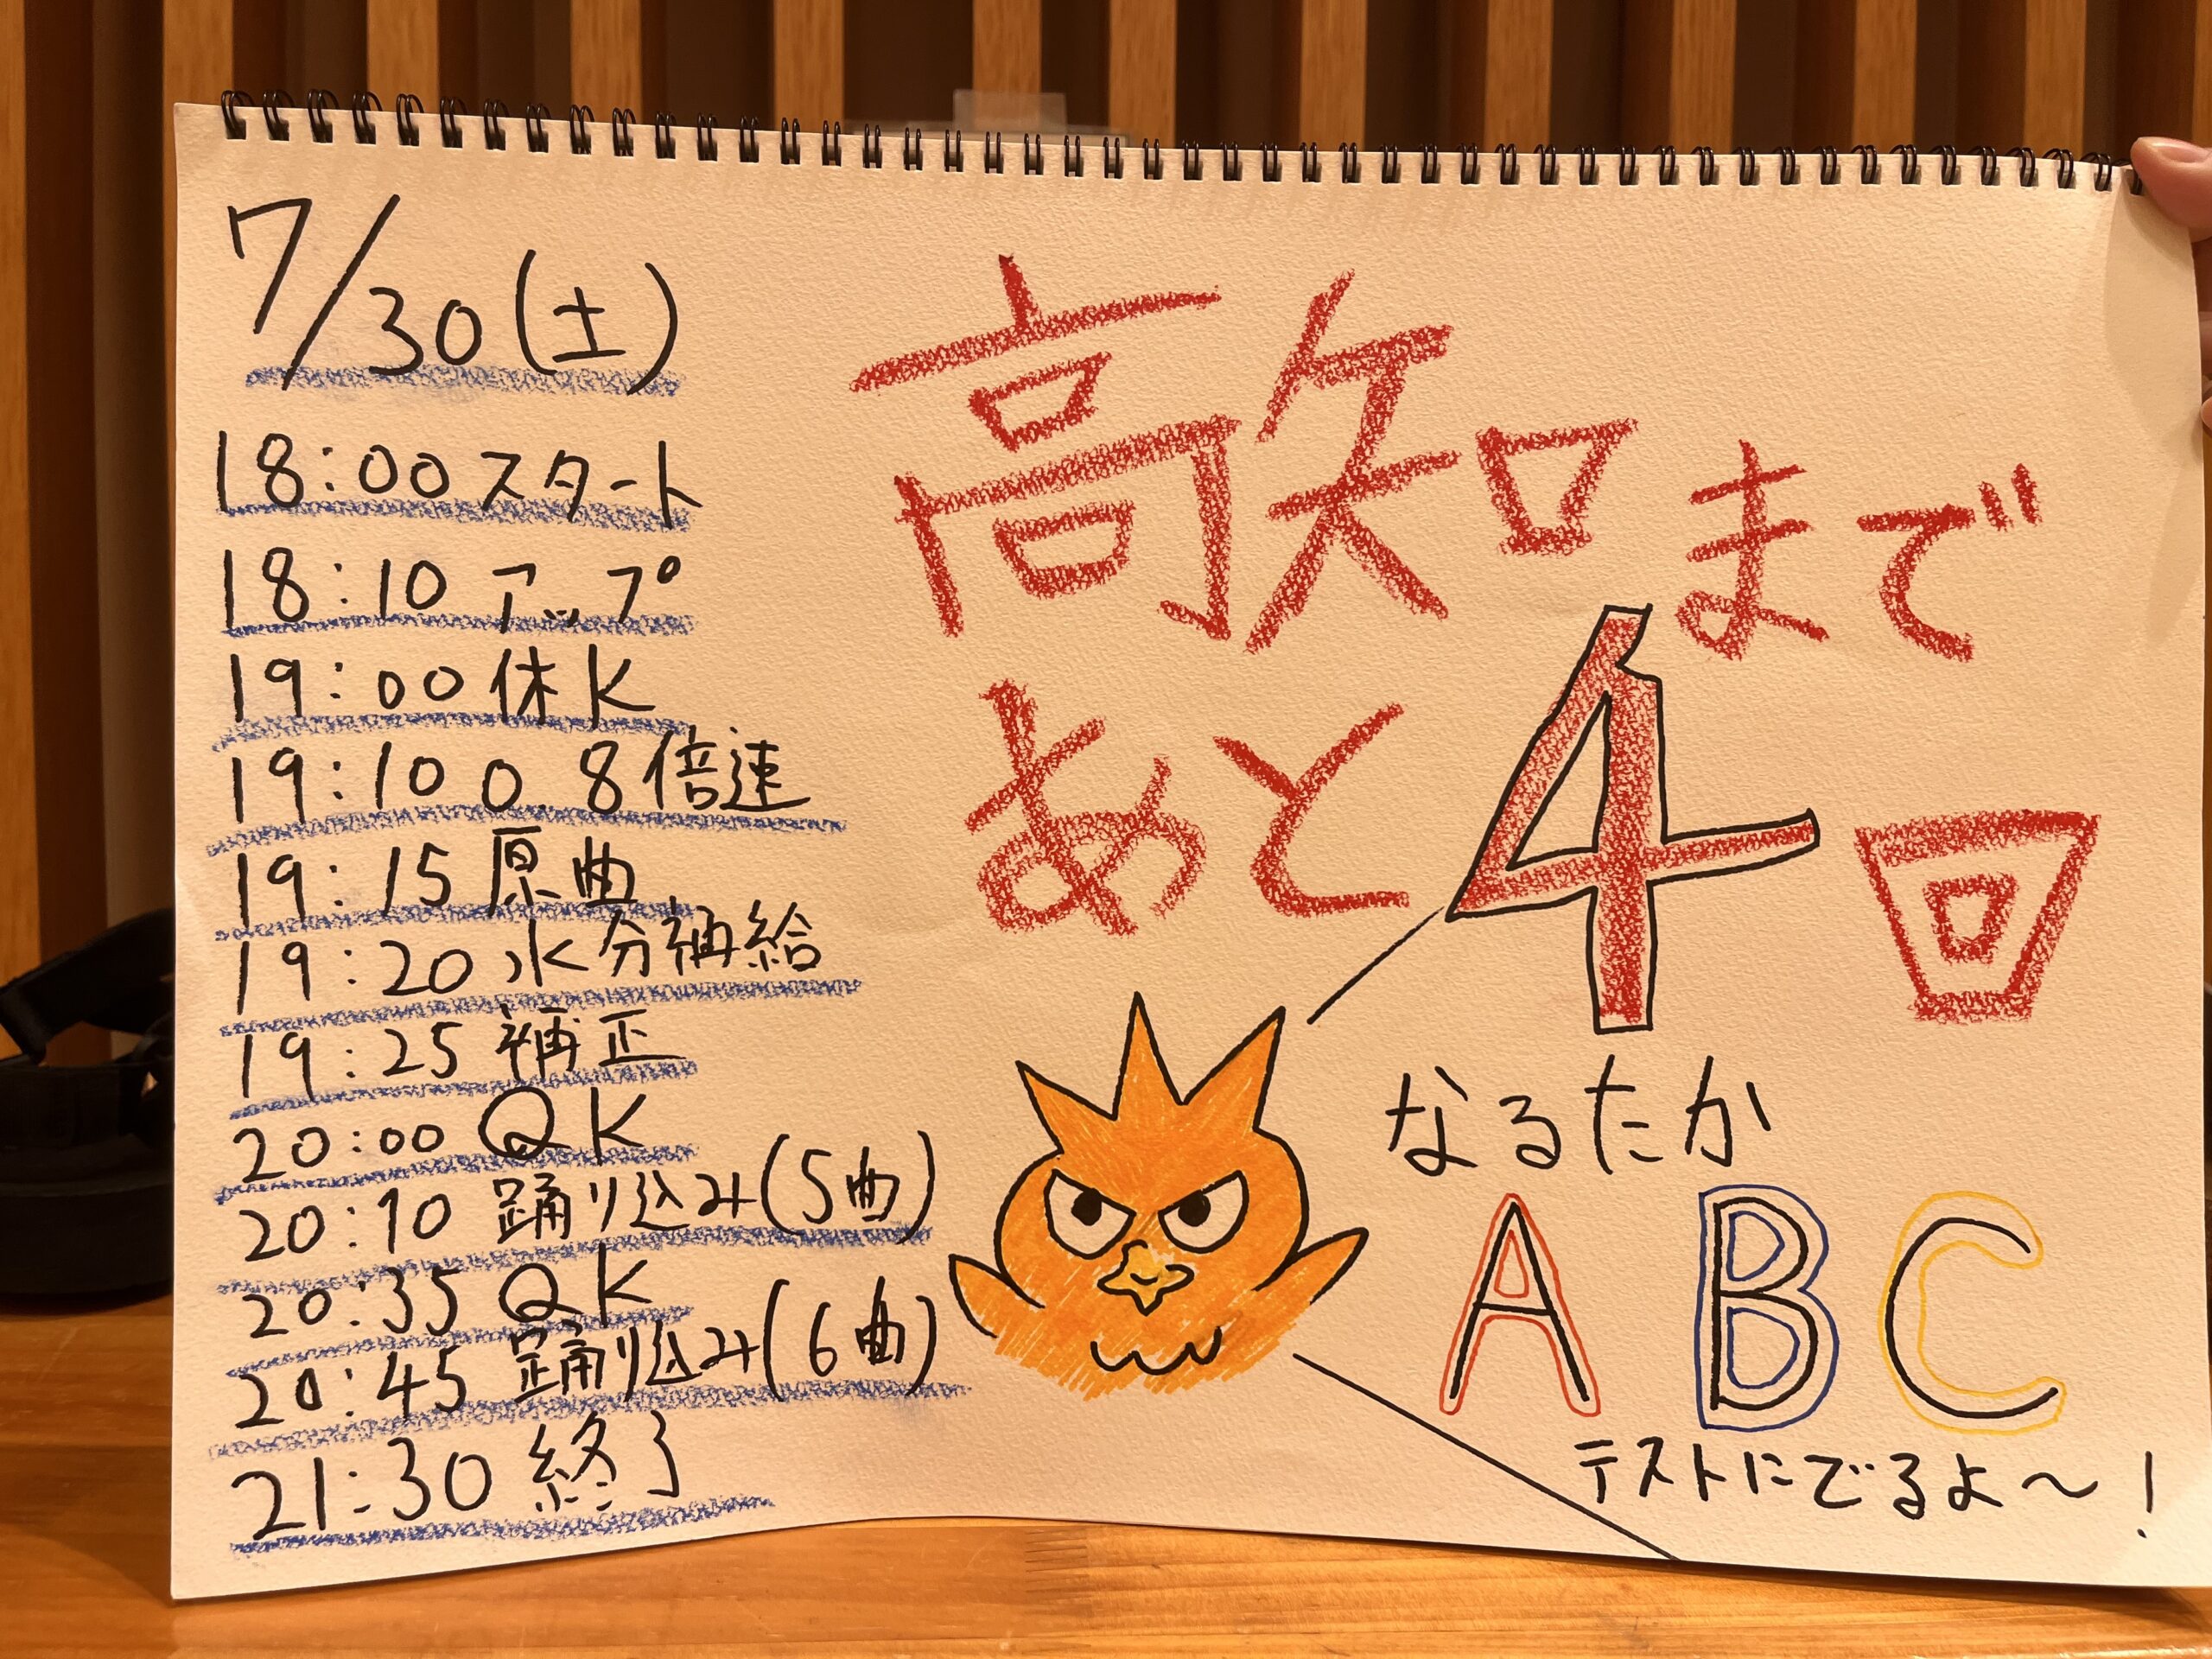 7/30(土)
18:00 スタート
18:10 アップ
19:00 休K
19:10 0.8倍速
19:15 原曲
19:20 水分補給
19:25 補正
20:00 QK
20:10 踊り込み(5曲)
20:35 QK
20:45 踊り込み(6曲)
21:30 終了
高知まで
あと4回
なるたか
A B C
テストにでるよ〜!